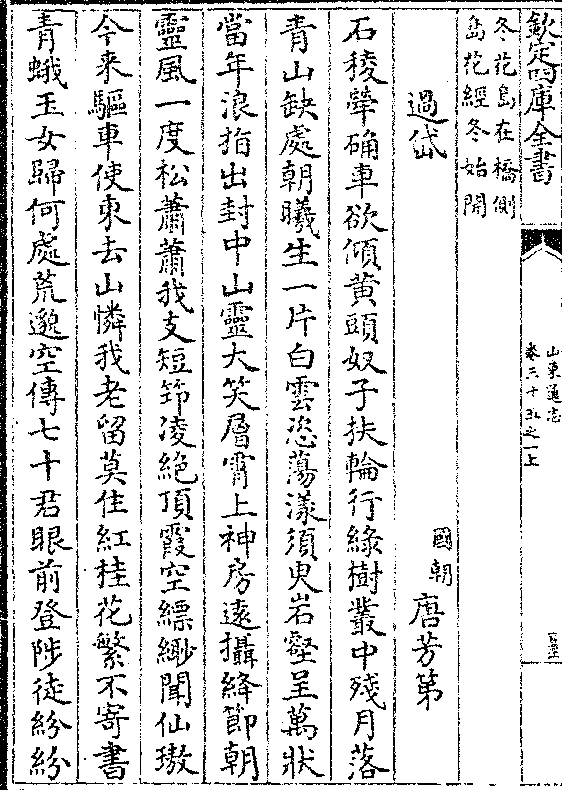 欽定四庫全書
山東通志
卷三十五之一上
冬花島在橋側
島花經冬始開
過岱
國朝
唐芳第
石稜犖确車欲傾黄頭奴子扶輪行綠樹叢中殘月落
青山缺處朝曦生一片白雲恣蕩漾須臾岩壑呈萬狀
當年浪指出封中山靈大笑層霄上神房遠攝絳節朝
靈風一度松蕭蕭我支短笻凌絶頂霞空縹緲聞仙璈
今来驅車使東去山憐我老留莫住紅桂花繁不寄書
青蛾玉女歸何處荒邈空傳七十君眼前登陟徒紛紛